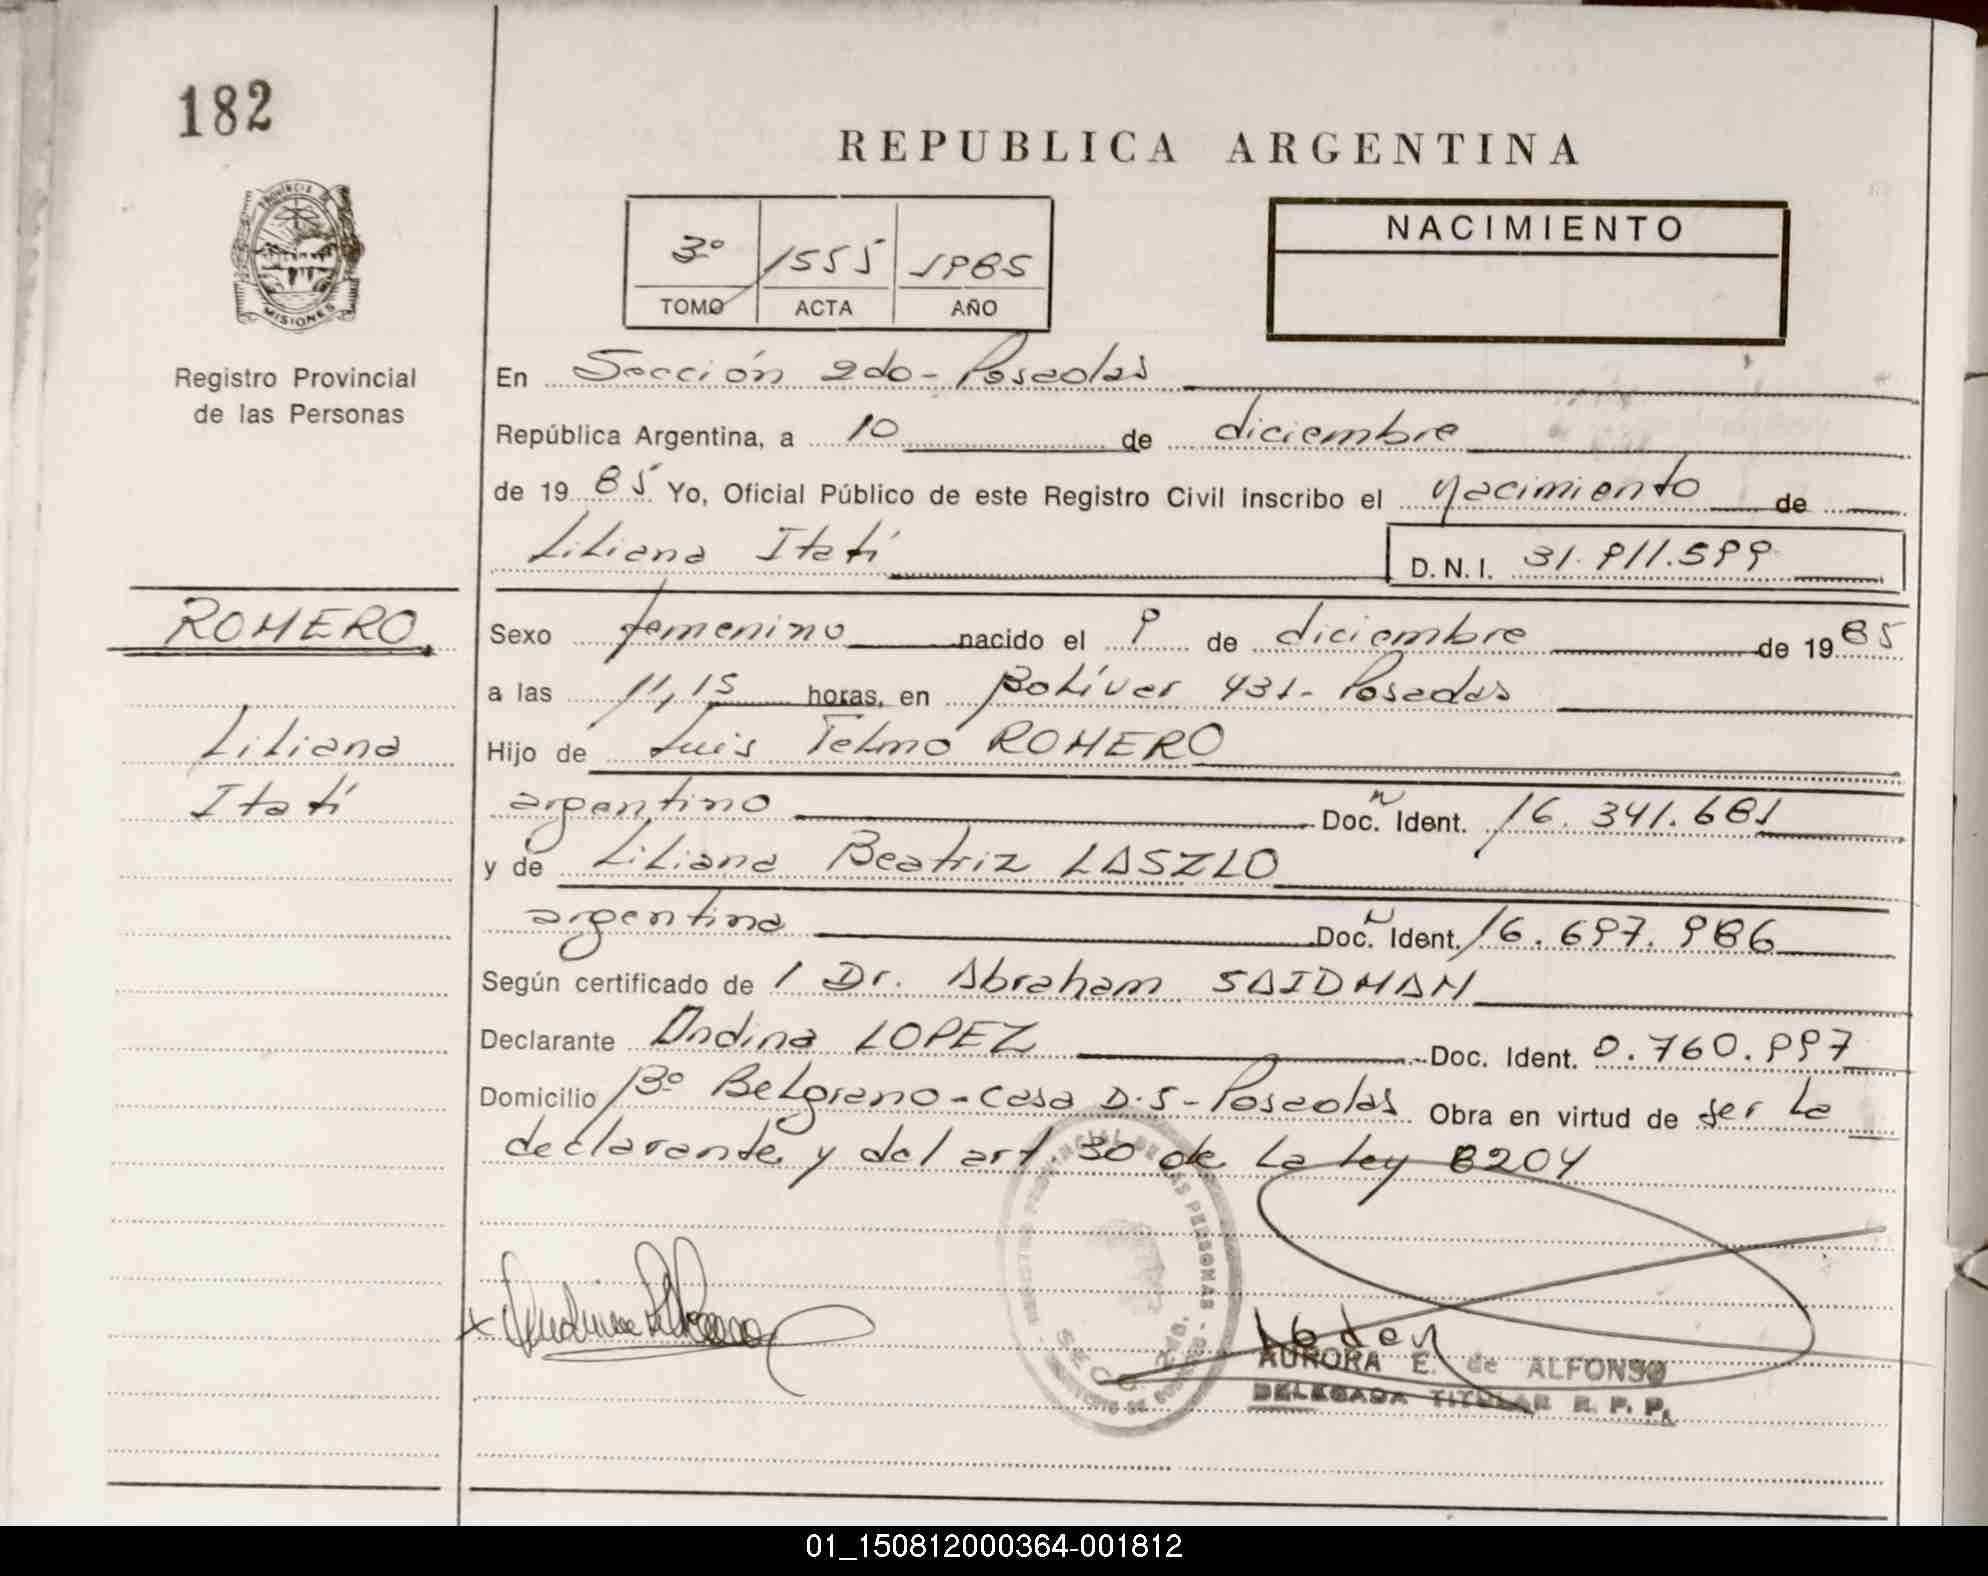 182
REPUBLICA ARGENTINA
PROVINCIA DE
MISIONES
Registro Provincial
de las Personas
3º 1555 1985
TOMO ACTA AÑO
NACIMIENTO
En Sección 2da - Posadas
República Argentina, a 10 de diciembre
de 19 85 Yo, Oficial Público de este Registro Civil inscribo el nacimiento de
Liliana Itatí
D.N.I. 31.911.599
ROMERO
Liliana
Itatí
Sexo femenino nacido el 9 de diciembre de 19 85
a las 11,15 horas, en Bolívar 431 - Posadas
Hijo de Luis Telmo ROMERO
argentino Doc. Ident. 16.341.681
y de Liliana Beatriz LASZLO
argentina Doc. Ident. 16.697.986
Según certificado de Dr. Abraham SAIDMAN
Declarante Ondina LOPEZ Doc. Ident. 0.760.997
Domicilio Bº Belgrano - Casa D.5 - Posadas Obra en virtud de ser la
declarante y del art 30 de la ley 8204
REGISTRO PROVINCIAL DE LAS PERSONAS
AURORA E. de ALFONSO
DELEGADA TITULAR R. P. P.
01_150812000364-001812